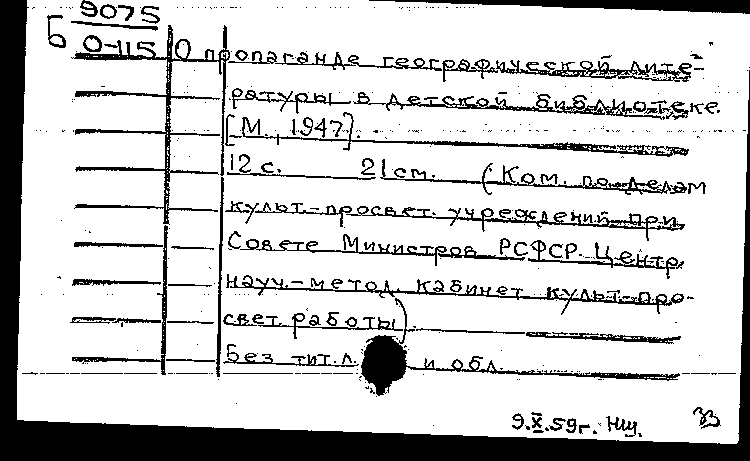 Б 9075
О-115
О пропаганде географической лите-
ратуры в детской библиотеке.
[М., 1947].
12 с. 21 см. (Ком. по делам
культ.-просвет. учреждений при
Совете Министров РСФСР. Центр.
науч.-метод. кабинет культ.-про-
свет. работы).
Без тит. л. и обл.
9.X.59г. Нщ. 33